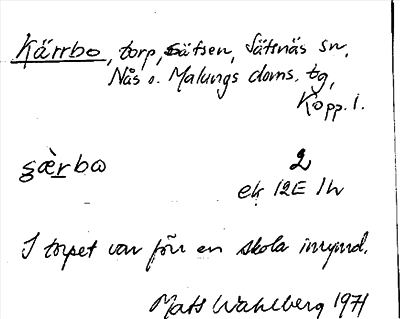 Kärrbo, torp, Sätsen, Sätsnäs sn,
Nås o. Malungs doms. tg,
Kopp. l.
gæ̀rba 2
ek 12E 1h
I torpet var förr en skola inrymd.
Mats Wahlberg 1971